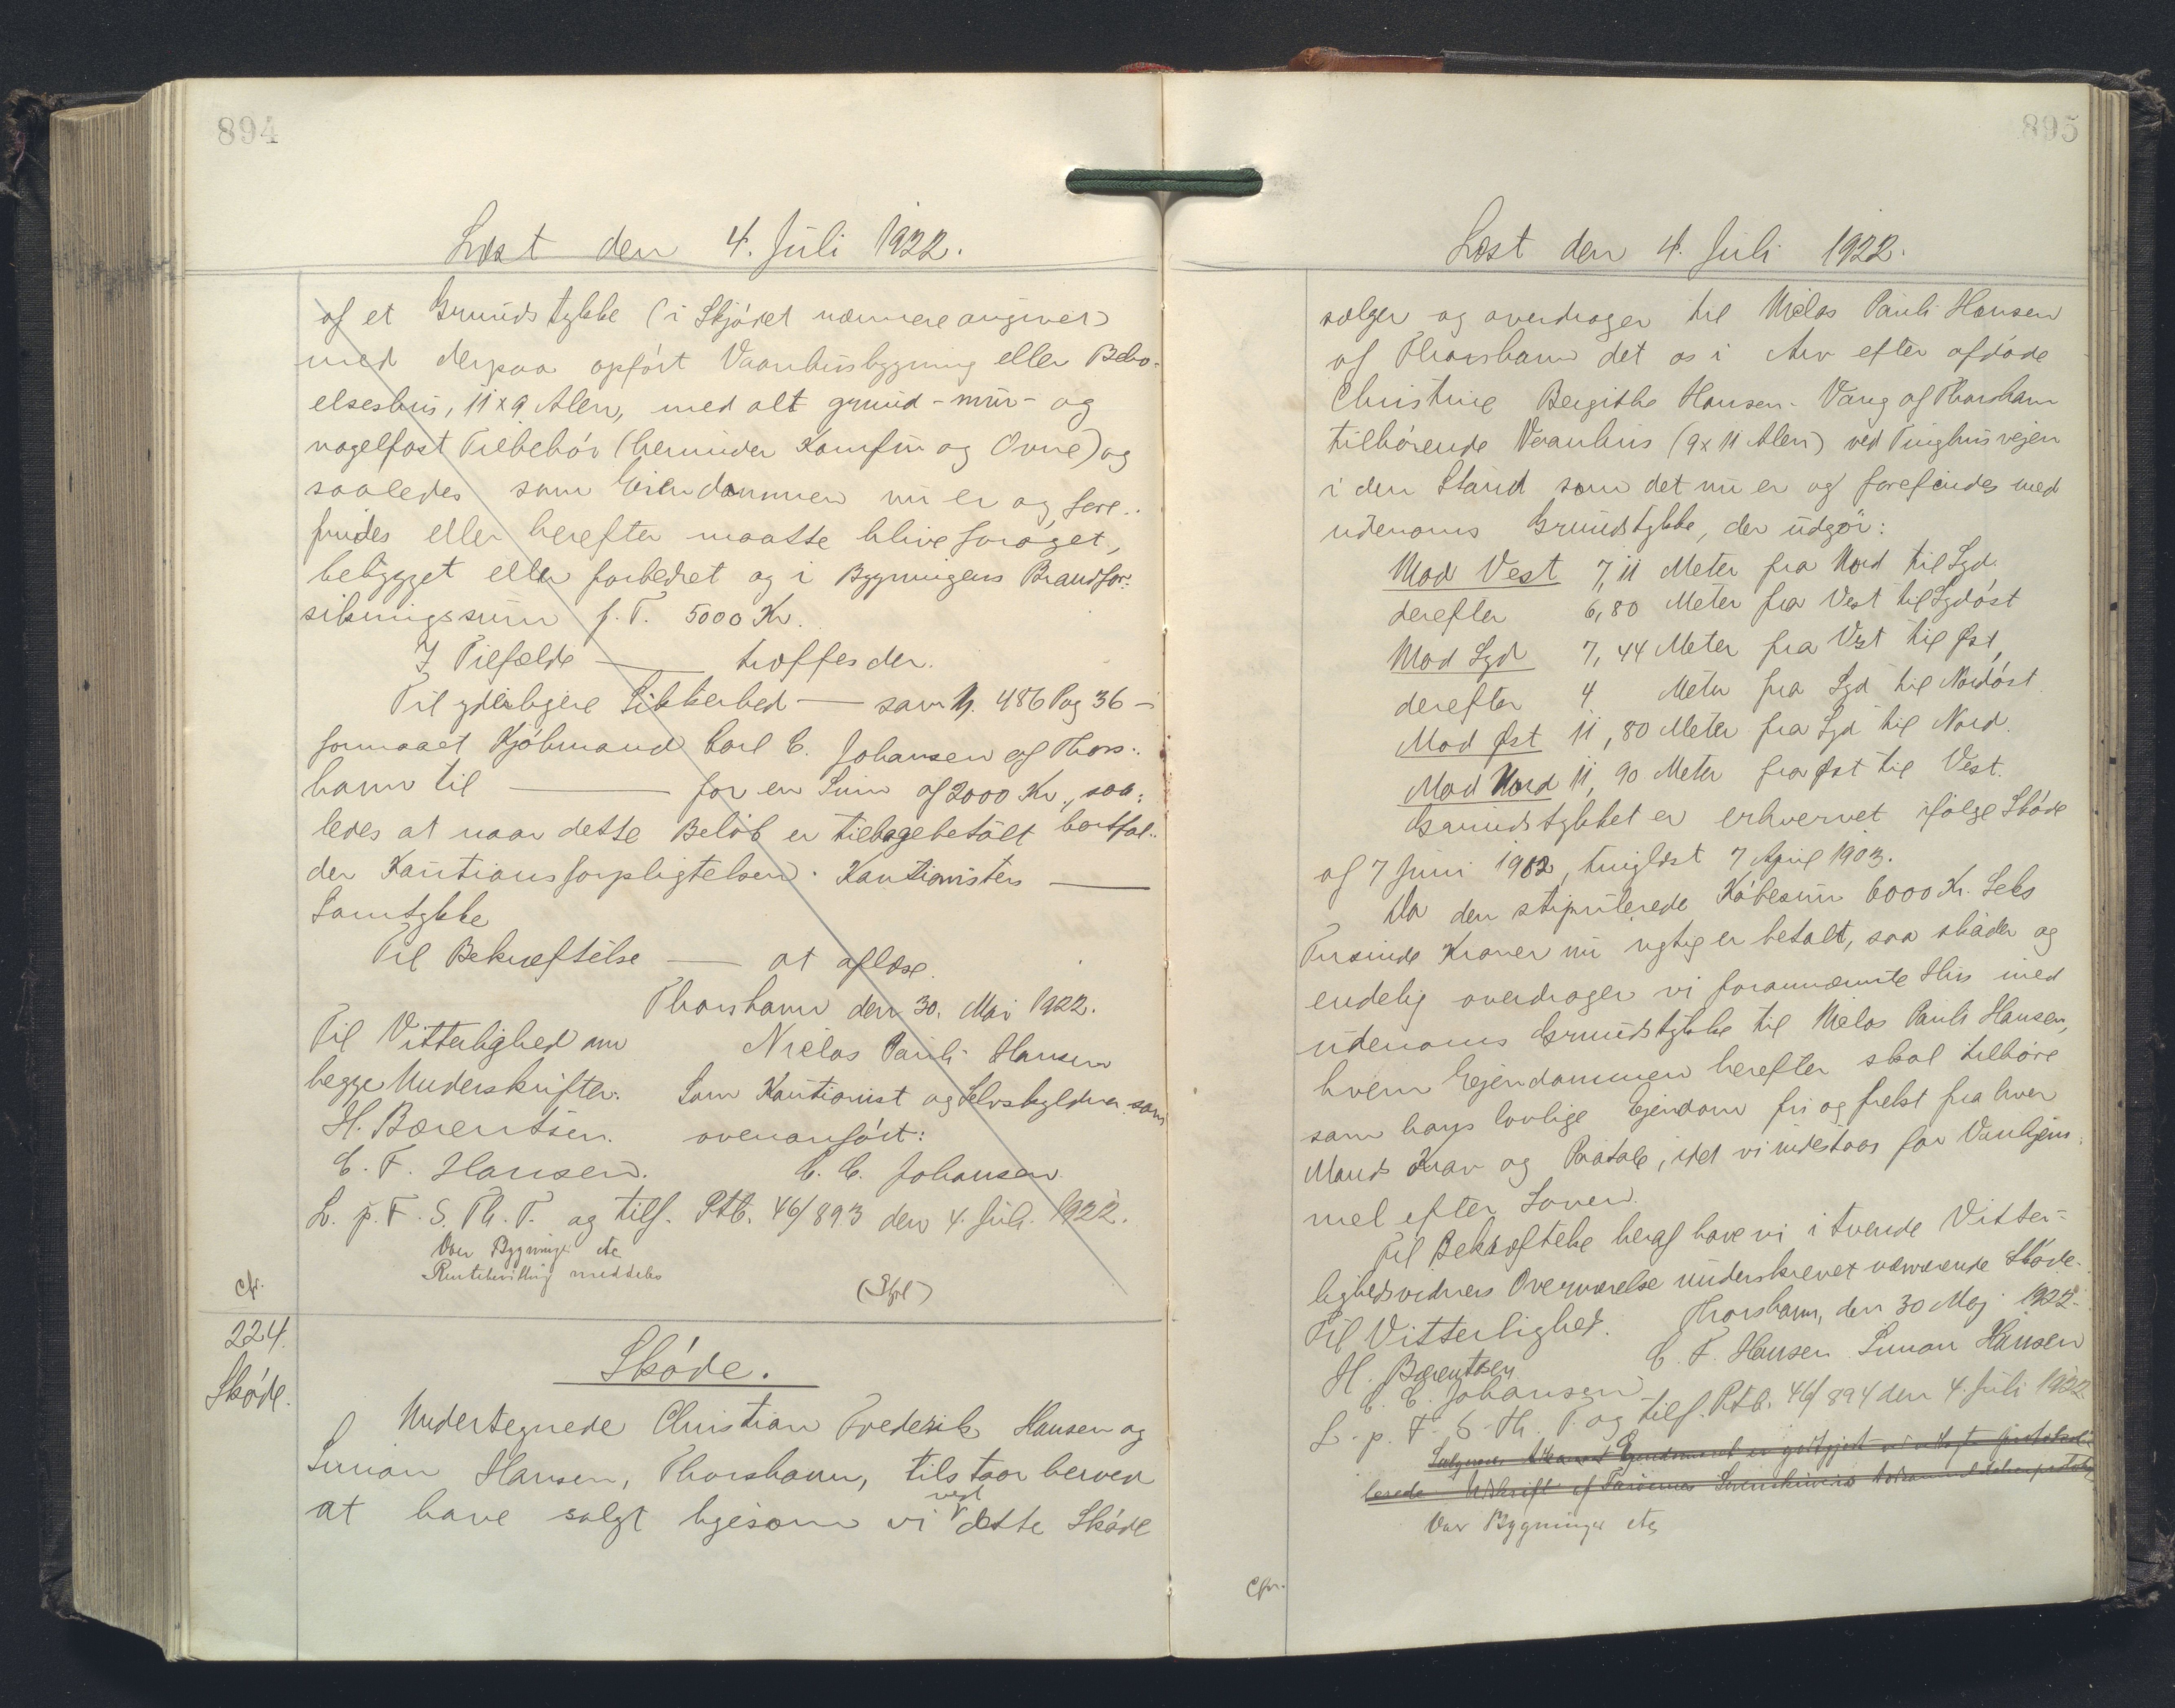 894
Læst den 4. Juli 1922.
af et Grundstykke (i Skjødet nærmere angivet)
med derpaa opført Vaanhusbygning eller Bebo-
elseshus, 11 x 9 Alen, med alt grund- mur- og
nagelfast Tilbehør (herunder Komfur og Ovne) og
saaledes som Ejendommen nu er og fore-
findes eller herefter maatte blive forøget,
bebygget eller forbedret og i Bygningens Brandfor-
sikringssum p. T. 5000 Kr.
I Tilfælde — træffes der.
Til yderligere Sikkerhed — som N. 486 Pag 36 —
formaaet Kjøbmand Carl C. Johansen af Thors-
havn til — for en Sum af 2000 Kr., saa-
ledes at naar dette Beløb er tilbagebetalt bortfal-
der Kautionsforpligtelsen. Kautionisten —
Samtykke
Til Bekræftelse — at aflæse.
Thorshavn den 30. Mai 1922.
Til Vitterlighed om Niclas Pauli Hansen
begge Underskrifter. Som Kautionist og Selvskyldner som
H. Bærentsen. ovenanført:
C. F. Hansen. C. C. Johansen.
L. p. F. S. Th. T. og tilf. Ptb. 46/893 den 4. Juli 1922.
Var Bygninger etc
Rentebevilling meddeles
cfr.
224.
Skøde.
Skøde.
Undertegnede Christian Frederik Hansen og
Simon Hansen, Thorshavn, tilstaar herved
at have solgt ligesom vi ved dette Skøde
895
Læst den 4. Juli 1922.
sælger og overdrager til Niclas Pauli Hansen
af Thorshavn det os i Arv efter afdøde
Christine Bergithe Hansen - Vang af Thorshavn
tilhørende Vaanhus (9 x 11 Alen) ved Tinghusvejen
i den Stand som det nu er og forefindes med
udenoms Grundstykke, der udgør:
Mod Vest 7,11 Meter fra Nord til Syd.
derefter 6,80 Meter fra Vest til Sydøst
Mod Syd 7,44 Meter fra Vest til Øst,
derefter 4 Meter fra Syd til Nordøst
Mod Øst 11,80 Meter fra Syd til Nord.
Mod Nord 11,90 Meter fra Øst til Vest.
Grundstykket er erhvervet ifølge Skøde
af 7 Juni 1902, tinglæst 7 April 1903.
Da den stipulerede Købesum 6000 Kr. Seks
Tusinde Kroner nu rigtig er betalt, saa skøder og
endelig overdrager vi forannævnte Hus med
udenoms Grundstykke til Niclas Pauli Hansen,
hvem Ejendommen herefter skal tilhøre
som hans lovlige Ejendom fri og frelst fra hver
Mands Krav og Paatale, idet vi indestaar for Vanhjem-
mel efter Loven.
Til Bekræftelse heraf have vi i tvende Vitter-
lighedsvidners Overværelse underskrevet nærværende Skøde.
Thorshavn, den 30 Maj 1922.
Til Vitterlighed. C. F. Hansen Simon Hansen
H. Bærentsen
C. C. Johansen
L. p. F. S. Th. T. og tilf. Ptb. 46/894 den 4. Juli 1922
Var Bygninger etc
cfr.